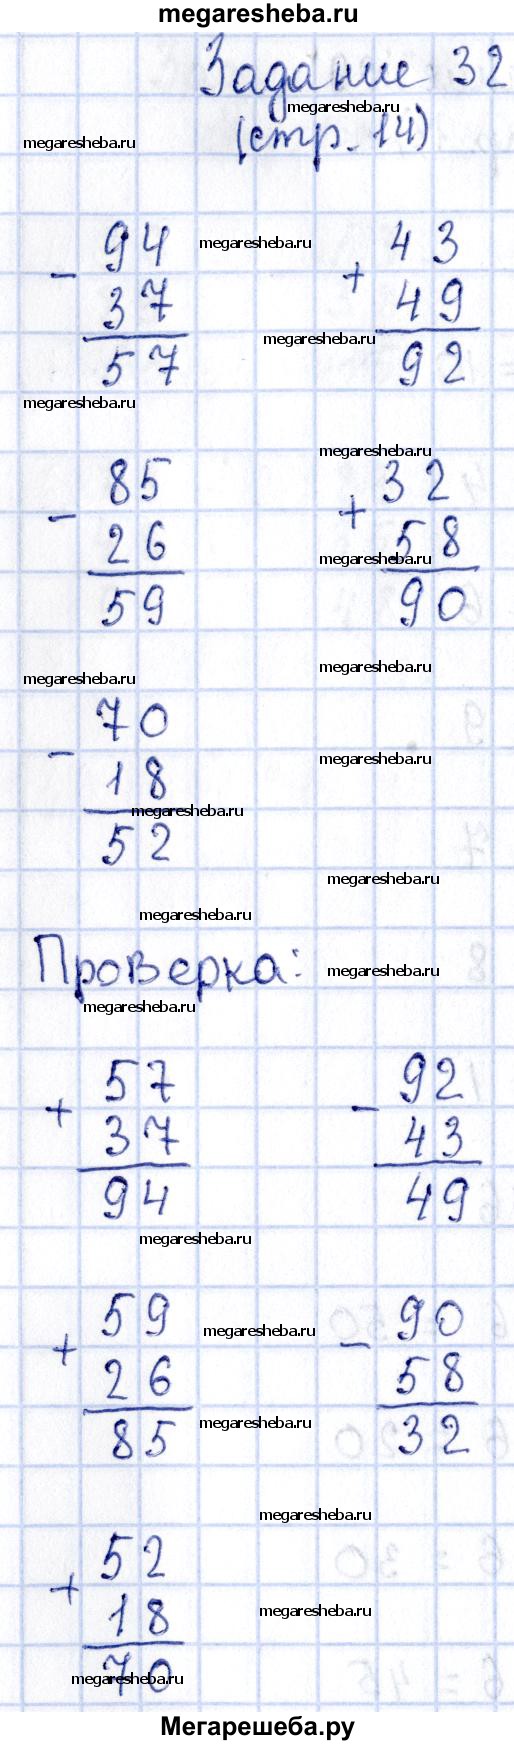 megaresheba.ru
Задание 32
megaresheba.ru
megaresheba.ru
(стр. 14)
megaresheba.ru
- 94
37
57
+ 43
49
92
megaresheba.ru
megaresheba.ru
megaresheba.ru
- 85
26
59
+ 32
58
90
megaresheba.ru
megaresheba.ru
megaresheba.ru
- 70
18
52
megaresheba.ru
megaresheba.ru
megaresheba.ru
megaresheba.ru
Проверка:
megaresheba.ru
megaresheba.ru
+ 57
37
94
- 92
43
49
megaresheba.ru
+ 59
26
85
megaresheba.ru
- 90
58
32
megaresheba.ru
megaresheba.ru
+ 52
18
70
megaresheba.ru
megaresheba.ru
Мегарешеба.ру